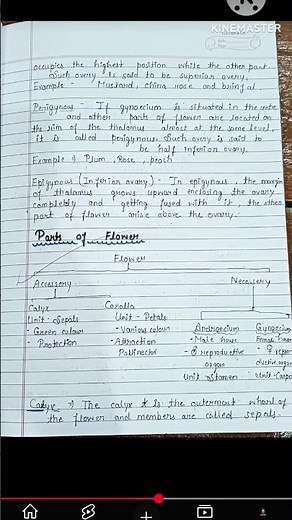 MADE WITH
KINEMASTER
occupies the highest position while the other part.
Such overy is said to be superior overy.
Example - Mustard, China rose and brinjal
Perigynous - If gynoecium is situated in the centre
and other parts of flower are located on
the rim of the thalamus almost at the same level,
it is called perigynous. Such overy is said to
be half inferior ovary.
Example → Plum, Rose, peach
Epigynous (Inferior ovary) - In epigynous, the margin
of thalamus grows upward enclosing the ovary
completely and getting fused with it, the other
part of flower arise above the ovary.
Parts of Flower
Flower
Accessory Necessary
Calyx Corolla Androecium Gynoecium
Unit - Sepals Unit - Petals - Male
- Green colour - Various colour ♂ reproductive
- Protection - Attraction organ
Unit Stamen
Calyx → The calyx is the outermost whorl of
the flower and members are called sepals.